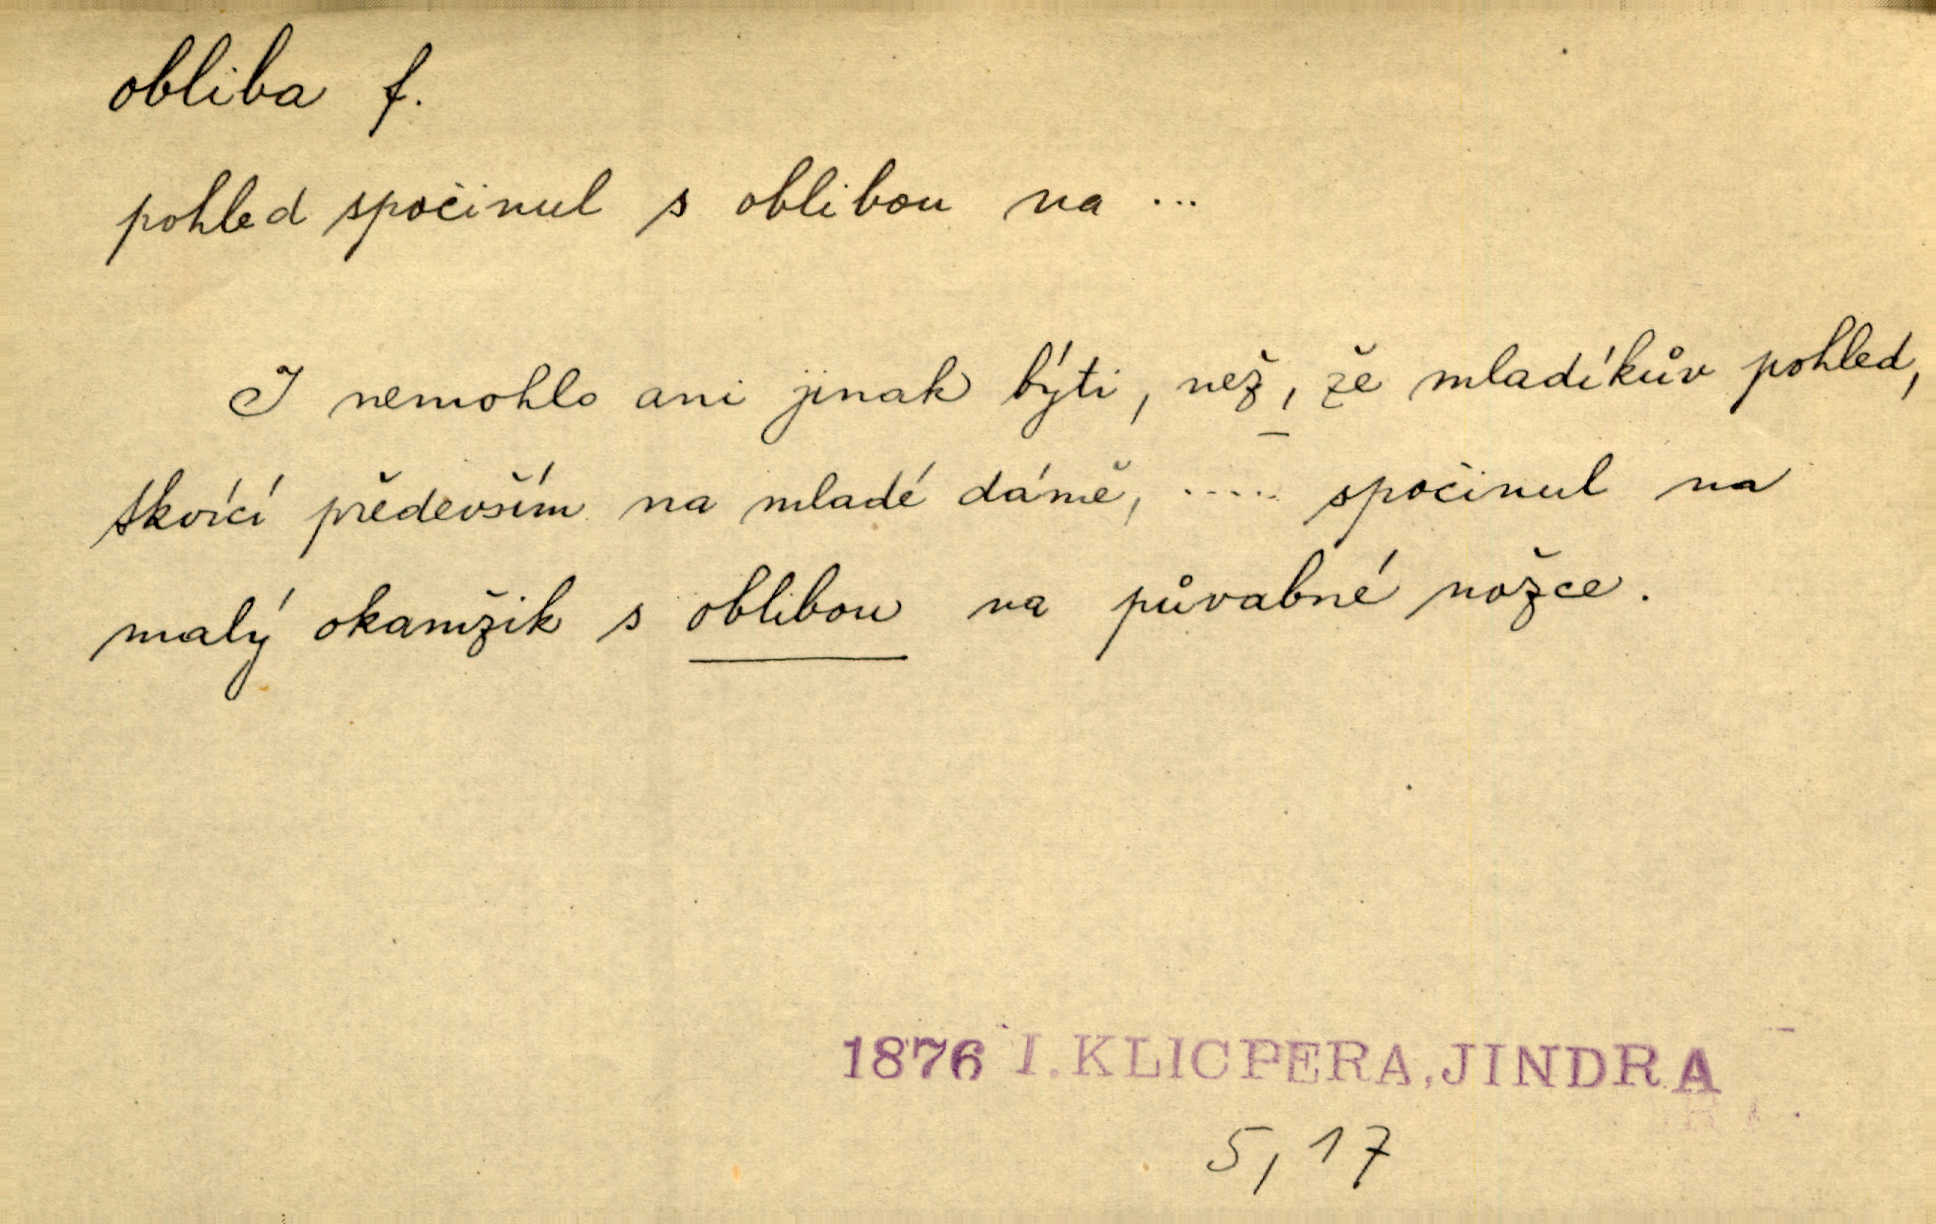 obliba f.
pohled spočinul s oblibou na ...
I nemohlo ani jinak býti, než, že mladíkův pohled,
tkvící především na mladé dámě, ..... spočinul na
malý okamžik s oblibou na půvabné nožce.
1876 I. KLICPERA, JINDRA
5, 17